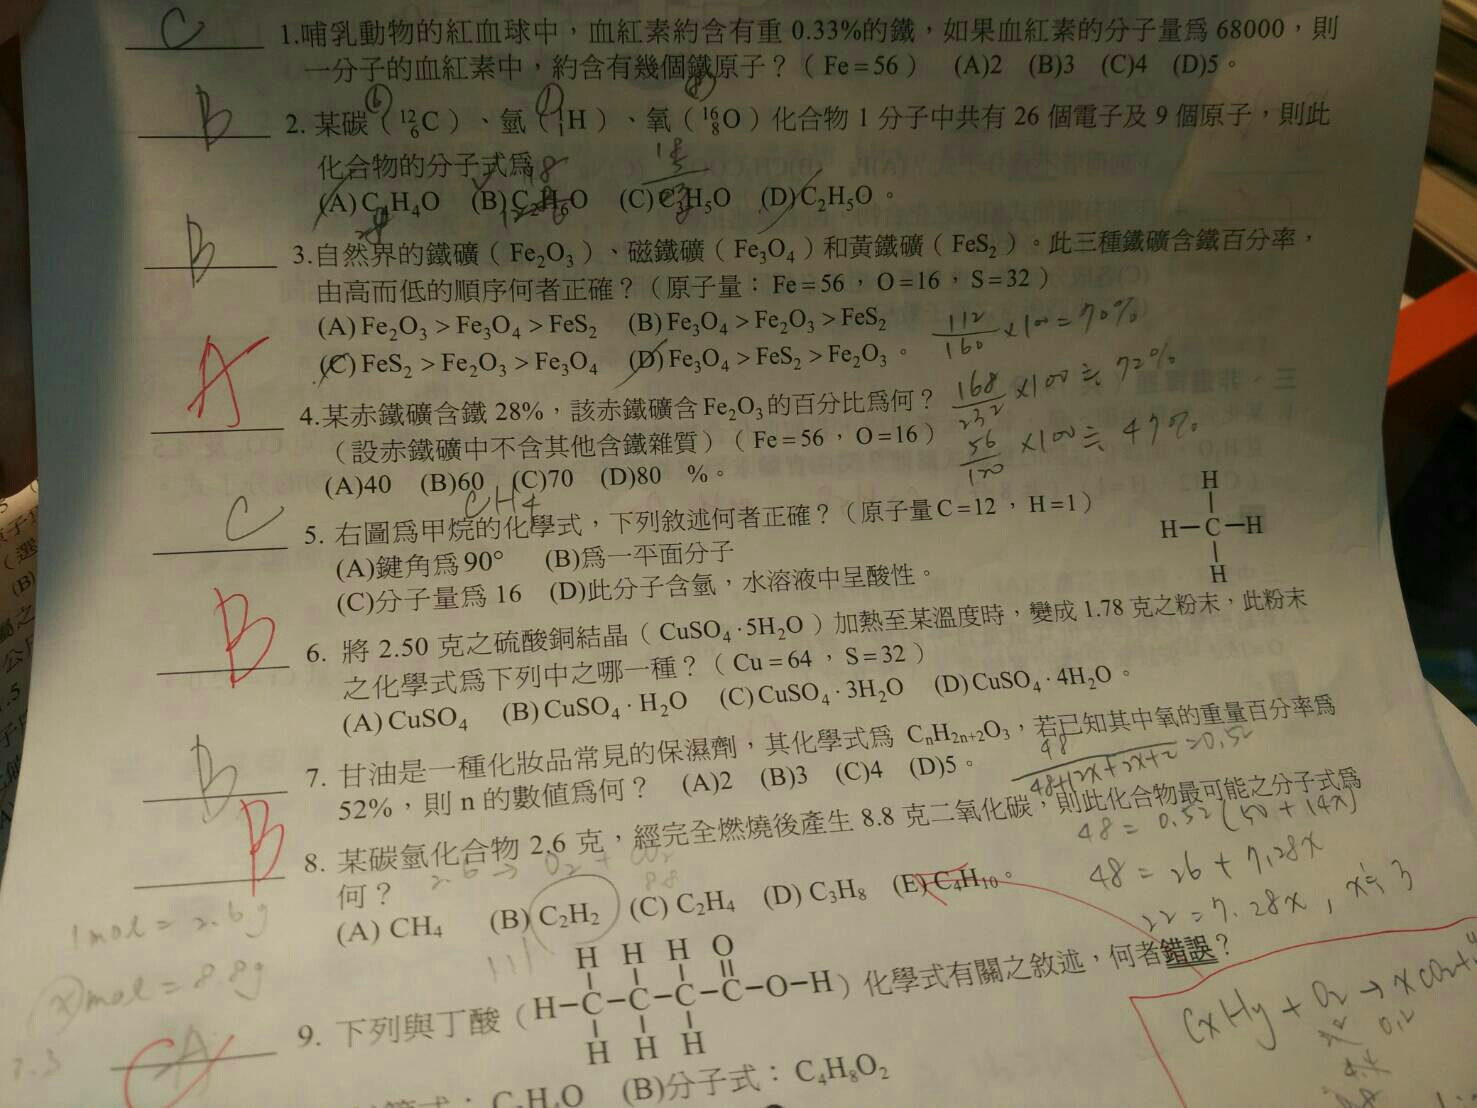 C 1.哺乳動物的紅血球中，血紅素約含有重 0.33%的鐵，如果血紅素的分子量爲 68000，則
一分子的血紅素中，約含有幾個鐵原子？（Fe＝56） (A)2 (B)3 (C)4 (D)5。
B 2. 某碳（¹²₆C）、氫（¹₁H）、氧（¹⁶₈O）化合物 1 分子中共有 26 個電子及 9 個原子，則此
化合物的分子式爲
(A)C₂H₄O (B)C₂H₆O (C)C₃H₅O (D)C₂H₅O。
B 3.自然界的鐵礦（Fe₂O₃）、磁鐵礦（Fe₃O₄）和黃鐵礦（FeS₂）。此三種鐵礦含鐵百分率，
由高而低的順序何者正確？（原子量：Fe＝56，O＝16，S＝32）
(A)Fe₂O₃＞Fe₃O₄＞FeS₂ (B)Fe₃O₄＞Fe₂O₃＞FeS₂
(C)FeS₂＞Fe₂O₃＞Fe₃O₄ (D)Fe₃O₄＞FeS₂＞Fe₂O₃。
112/160 ×100 = 70%
A 4.某赤鐵礦含鐵 28%，該赤鐵礦含Fe₂O₃的百分比爲何？
168/232 ×100 ≒ 72%
（設赤鐵礦中不含其他含鐵雜質）（Fe＝56，O＝16）
56/120 ×100 ≒ 47%
(A)40 (B)60 (C)70 (D)80 %。
CH4
C 5. 右圖爲甲烷的化學式，下列敘述何者正確？（原子量C＝12，H＝1）
H
H－C－H
H
(A)鍵角爲90° (B)爲一平面分子
(C)分子量爲 16 (D)此分子含氫，水溶液中呈酸性。
B 6. 將 2.50 克之硫酸銅結晶（CuSO₄·5H₂O）加熱至某溫度時，變成 1.78 克之粉末，此粉末
之化學式爲下列中之哪一種？（Cu＝64，S＝32）
(A)CuSO₄ (B)CuSO₄·H₂O (C)CuSO₄·3H₂O (D)CuSO₄·4H₂O。
B 7. 甘油是一種化妝品常見的保濕劑，其化學式爲 CₙH₂ₙ₊₂O₃，若已知其中氧的重量百分率爲
52%，則 n 的數値爲何？ (A)2 (B)3 (C)4 (D)5。
48/48+12x+2x+2 =0.52
48 = 0.52(50+14x)
48 = 26 + 7.28x
22 = 7.28x，x≒3
B 8. 某碳氫化合物 2.6 克，經完全燃燒後產生 8.8 克二氧化碳，則此化合物最可能之分子式爲
何？
(A) CH₄ (B) C₂H₂ (C) C₂H₄ (D) C₃H₈ (E) C₄H₁₀。
1mol = 2.6g
mol = 8.8g
A 9. 下列與丁酸（H－C－C－C－C－O－H）化學式有關之敘述，何者錯誤？
H H H O
H H H
CxHy + O2 → xCO2+
0.2
(B)分子式：C₄H₈O₂